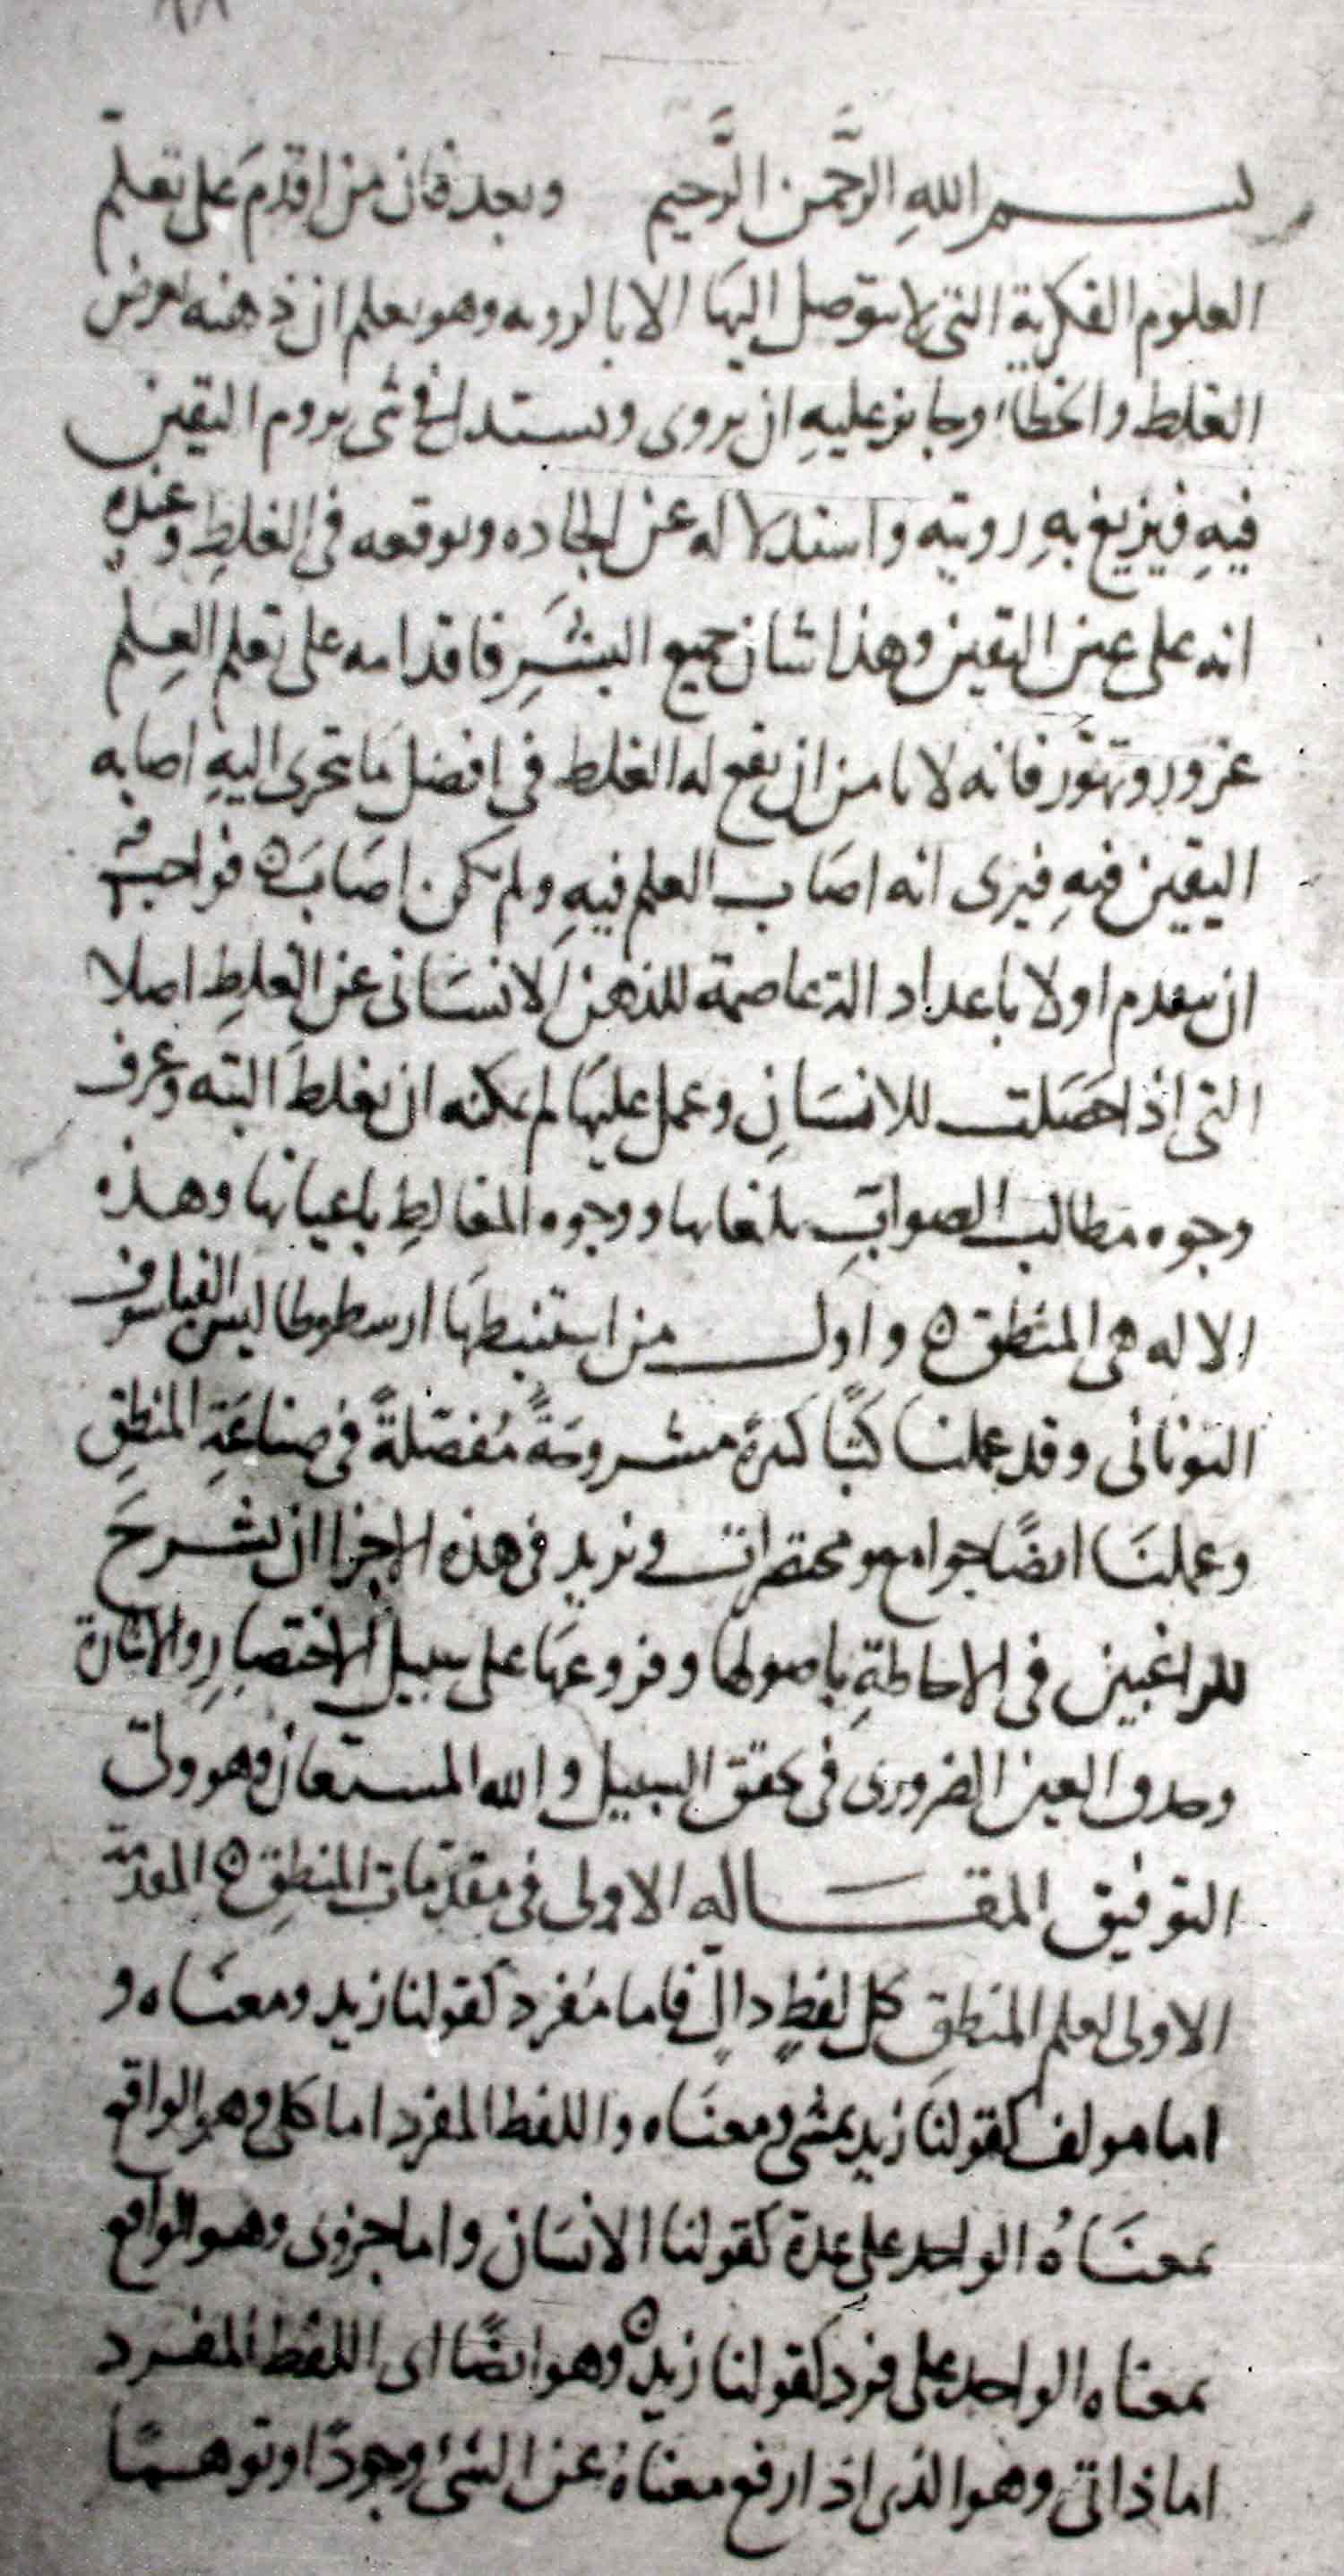 بسم اللهِ الرَّحمن الرَّحيم وبعد فان من اقدمَ على تعلّم
العلوم الفكرية التى لا يتوصل اليها الا بالرويه وهو يعلم ان ذهنه لعرض
الغلط والخطاء وجايز عليهِ ان يروى ويستدل فى شى يروم اليقين
فيهِ فيزيغ بهِ رويته واستدلاله عن الجاده ويوقعه فى الغلطِ وعنده
انه على عين اليقين وهذا شان جميع البشَرِ فاقدامه على تعلم العِلم
غرور وتهوّر فانه لا يامن ان يقع له الغلط فى افضل مَا يتحرى اليهِ اصابه
اليقين فيهِ فيرى انه اصَاب العلم فيهِ ولم يكن اصَابَه فواجبٌ
ان يتقدم اولا باعداد الة عاصمة للذهن الانسَانى عن الغلطِ اصلا
التى اذا حصَلت للانسَانِ وعمل عليهَا لم يمكنه ان يغلط البته وعرف
وجوه مطالب الصوابِ ووجوه المغالطِ باعيانها وهذه
الاله هى المنطق ه واول من استنبطهَا ارسطوطاليس الفيلسوف
اليونانى وقد عملنَا كتبًا كثيرة مشروحَةً مُفصّلةً فى صناعَةِ المنطقِ
وعملنَا ايضًا جوامع ومختصرات ونريد فى هذه الاجزا ان نشرحَ
للراغبين فى الاحاطةِ باصولها وفروعهَا على سبيل الاختصارِ والاشارة
وحذف الغير الضرورى فى تحقق السبيل والله المستعان وهو ولى
التوفيق المقاله الاولى فى مقدّمات المنطقِ ه المقدّمة
الاولى لعلم المنطقِ كل لفظٍ دالٍ فاما مُفرد كقولنا زيد ومعنَاه و
اما مولف كقولنَا زيد يمشى ومعنَاه واللفظ المفرد اما كلى وهو الواقع
بمعنَاهُ الواحد على عدة كقولنا الانسَان واما جزوى وهو الواقع
بمعناه الواحد على فرد كقولنا زيد ه وهو ايضًا اى اللفظ المفرد
اما ذاتى وهو الذى اذا رفع معناهُ عن الشئ وجودًا وتوهمًا